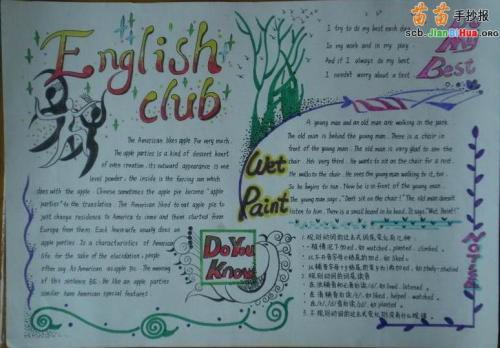 苗苗手抄报
scb.JianBiHua.org
English club
The American likes apple Pie very much.
The apple parties is a kind of dessert heart
of oven creation. its outward appearance is one
level powder. the inside is the farcing sum which
does with the apple. Chinese sometimes the apple pie become "apple
parties" to the translation. The American liked to eat apple pie to
just change residence to America to come and then started from
Europe from them. Each housewife usually does an
apple parties. Is a characteristics of American
life. for the sake of the elucidation. people
often say As American as apple Pie. The meaning
of this sentence BE: He like an apple parties
similar have American special features.
Do You Know
I try to do my best each day
In my work and in my play
And if I always do my best
I needn't worry about a test
Do My Best
Wet Paint
A young man and an old man are walking in the park.
The old man is behind the young man. There is a chair in
front of the young man. The old man is very glad to see the
chair. He's very tired. He wants to sit on the chair for a rest.
He walks to the chair. He sees the young man walking to it, too.
So he begins to run. Now he is in front of the young man.
The young man says, "Don't sit on the chair!" The old man doesn't
listen to him. There is a small board in he head. It says, "Wet Paint!"
1. 规则动词的过去式词尾变化有几种:
一般情况下加 ed. 如 watched, planted, climbed.
以不发音字母e结尾的加d, 如 liked, hoped.
以辅音字母+y结尾的变y为i再加ed. 如 study-studied
2. 规则动词的词尾读音
在浊辅音和元音后读/d/. 如 lived, listened.
在清辅音后读/t/. 如 liked, helped, watched.
在/t/, /d/音后读/id/. 如 planted.
3. 不规则动词的过去式变化则没有什么规律.